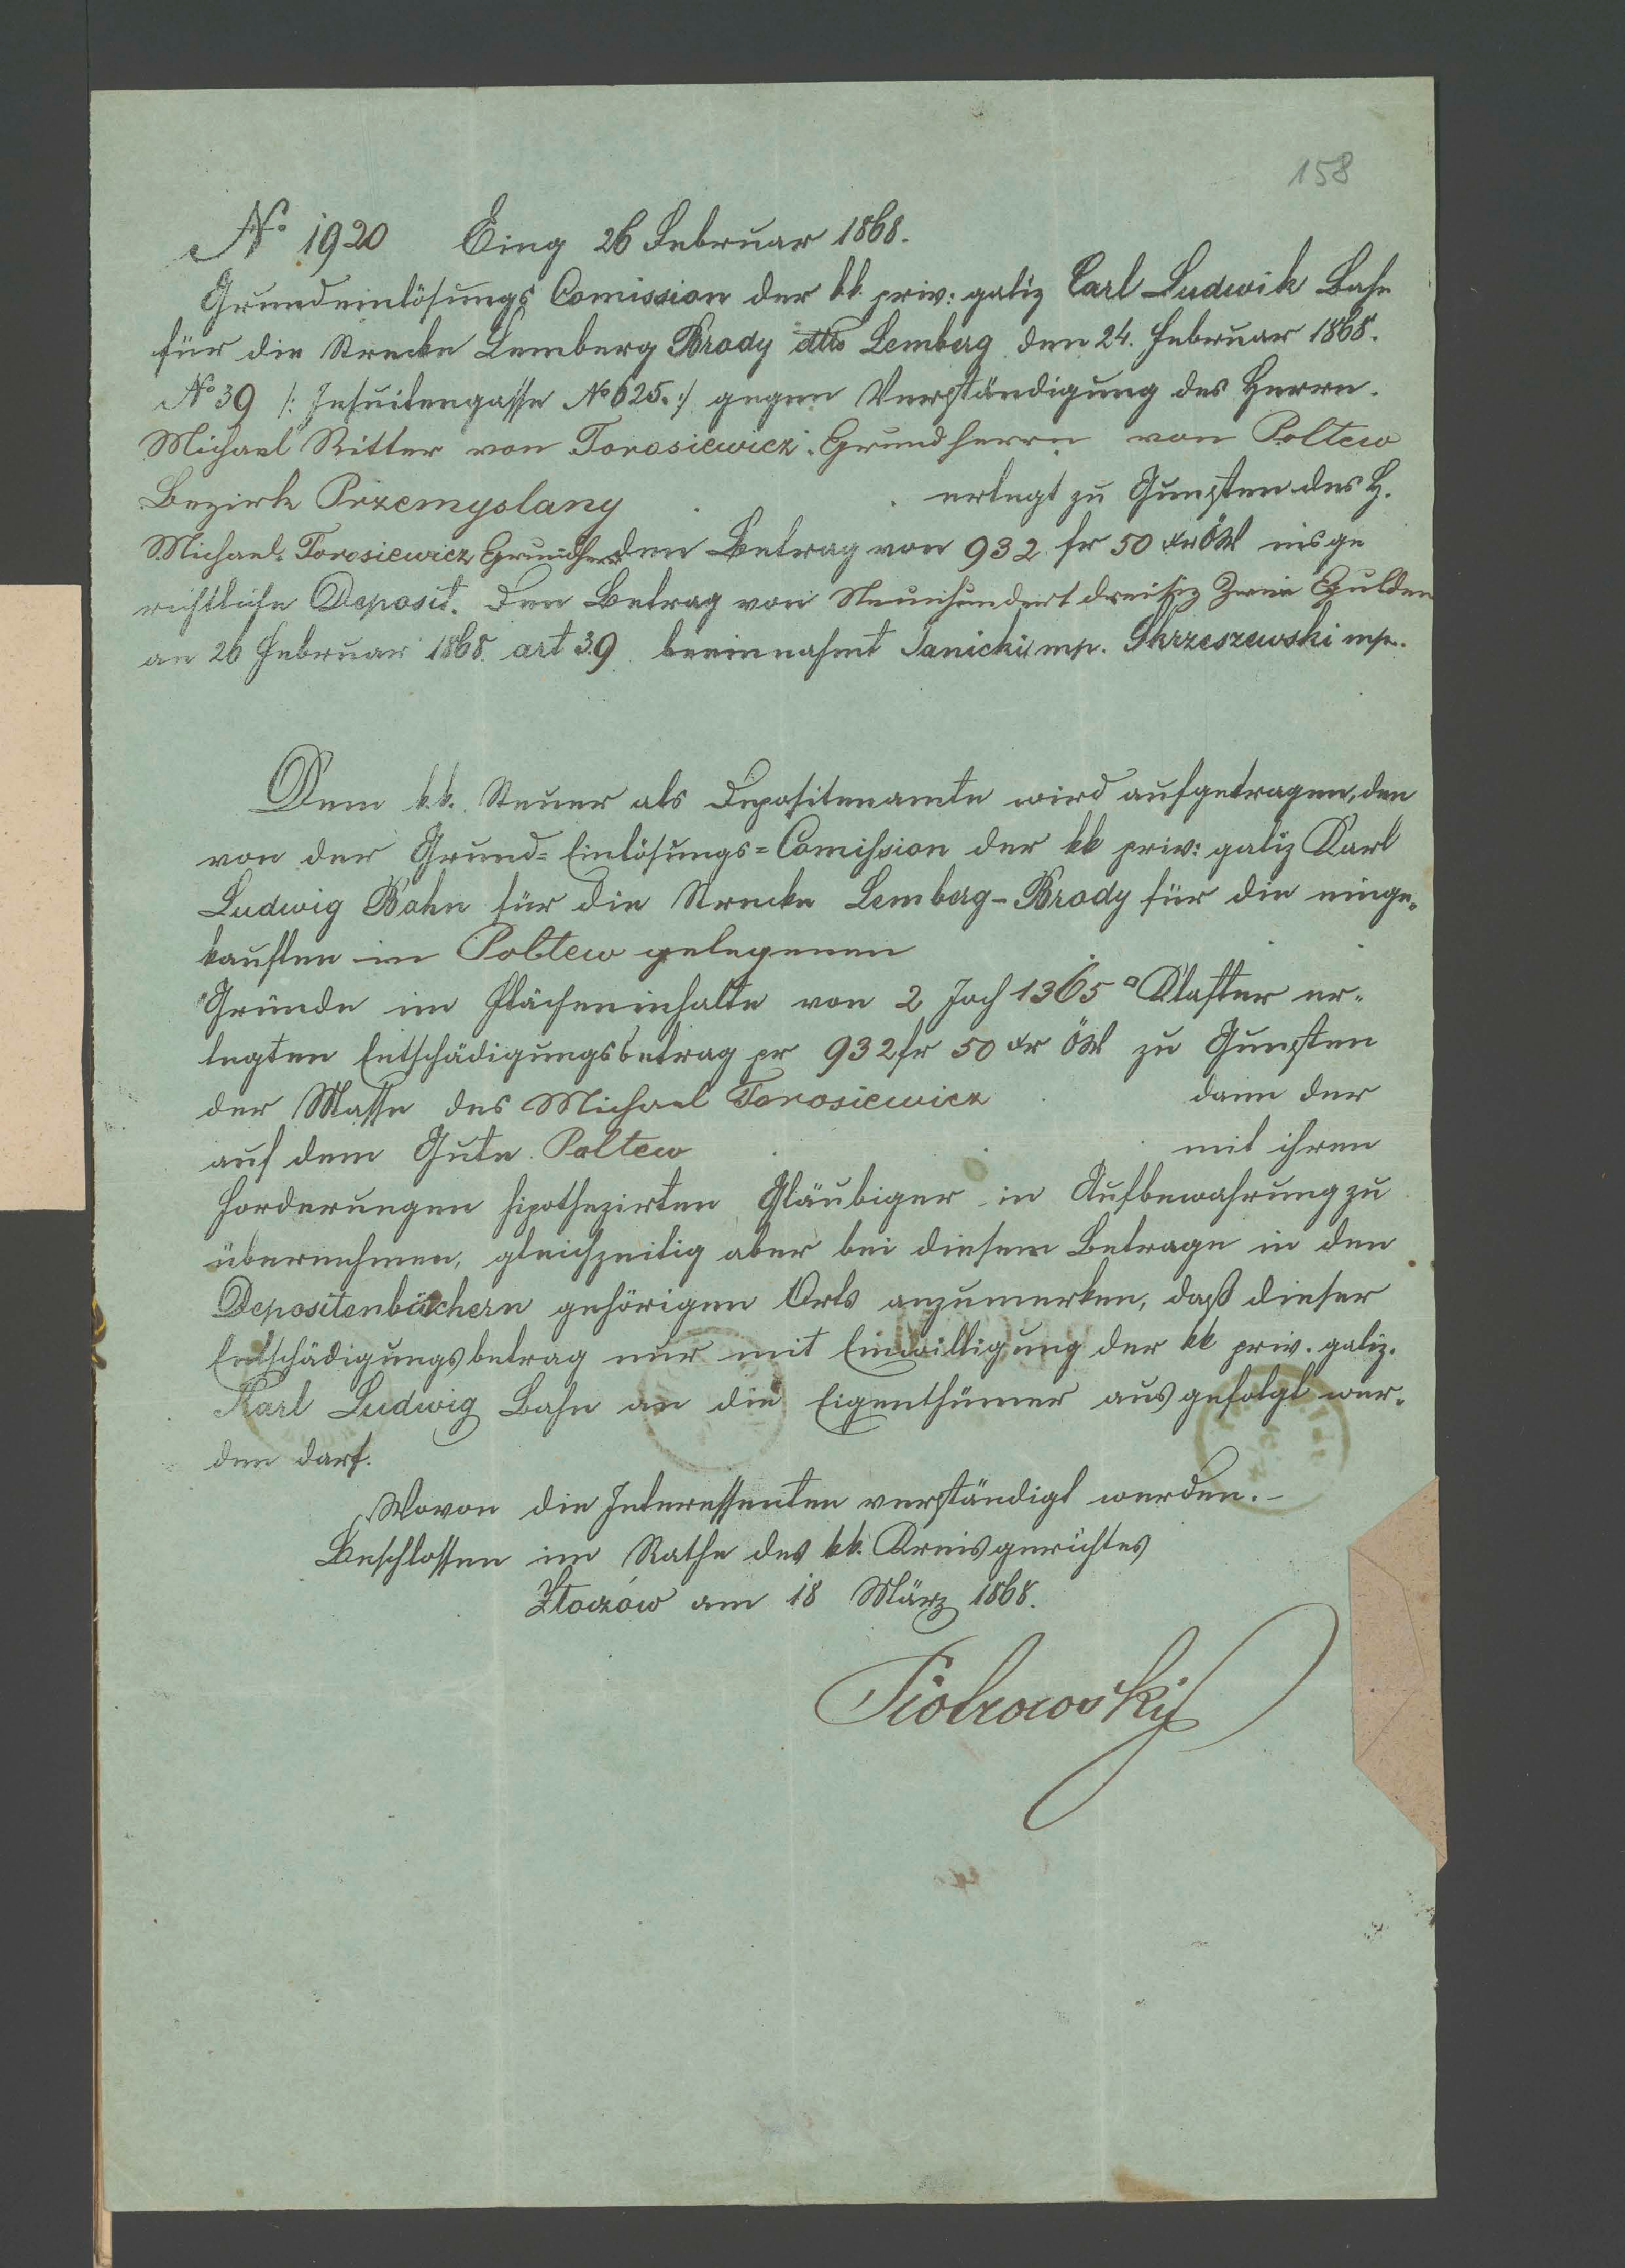 158
No 1920 Eing 26 Februar 1868.
Grundeinlösungs Comission der kk. priv: galiz Carl Ludwik Bahn
für die Strecke Lemberg Brody dtto Lemberg den 24. Februar 1868.
No 39 /: Jesuitengasse No 625. :/ gegen Verständigung des Herrn
Michael Ritter von Torosiewicz Grundherrn von Poltew
Bezirk Przemyslany erlegt zu Gunsten des H.
Michael Torosiewicz Grundherrn den Betrag von 932 fr 50 xr ÖW ins ge
richtliche Deposit. Den Betrag von Neunhundert dreißig Zwei Gulden
am 26 Februar 1868 art 39 beeinnahmt Janicki mp. Skrzeszewski mp.
Dem k.k. Steuer als Depositenamte wird aufgetragen, den
von der Grund-Einlösungs-Comission der kk priv: galiz Karl
Ludwig Bahn für die Strecke Lemberg-Brody für die einge-
kauften in Poltew gelegenen
Gründe im Flächeninhalte von 2 Joch 1365 □ Klafter er-
legten Entschädigungsbetrag pr 932 fr 50 xr ÖW zu Gunsten
der Masse des Michael Torosiewicz dann der
auf dem Gute Poltew mit ihren
Forderungen hipothezirten Gläubiger in Aufbewahrung zu
übernehmen, gleichzeitig aber bei diesem Betrage in den
Depositenbüchern gehörigen Orts anzumerken, daß dieser
Entschädigungsbetrag nur mit Einwilligung der kk priv. galiz.
Karl Ludwig Bahn an die Eigenthümer ausgefolgt wer-
den darf.
Wovon die Interessenten verständigt werden.-
Beschlossen im Rathe des kk. Kreisgerichtes
Złoczów am 18 März 1868.
Piotrowsky